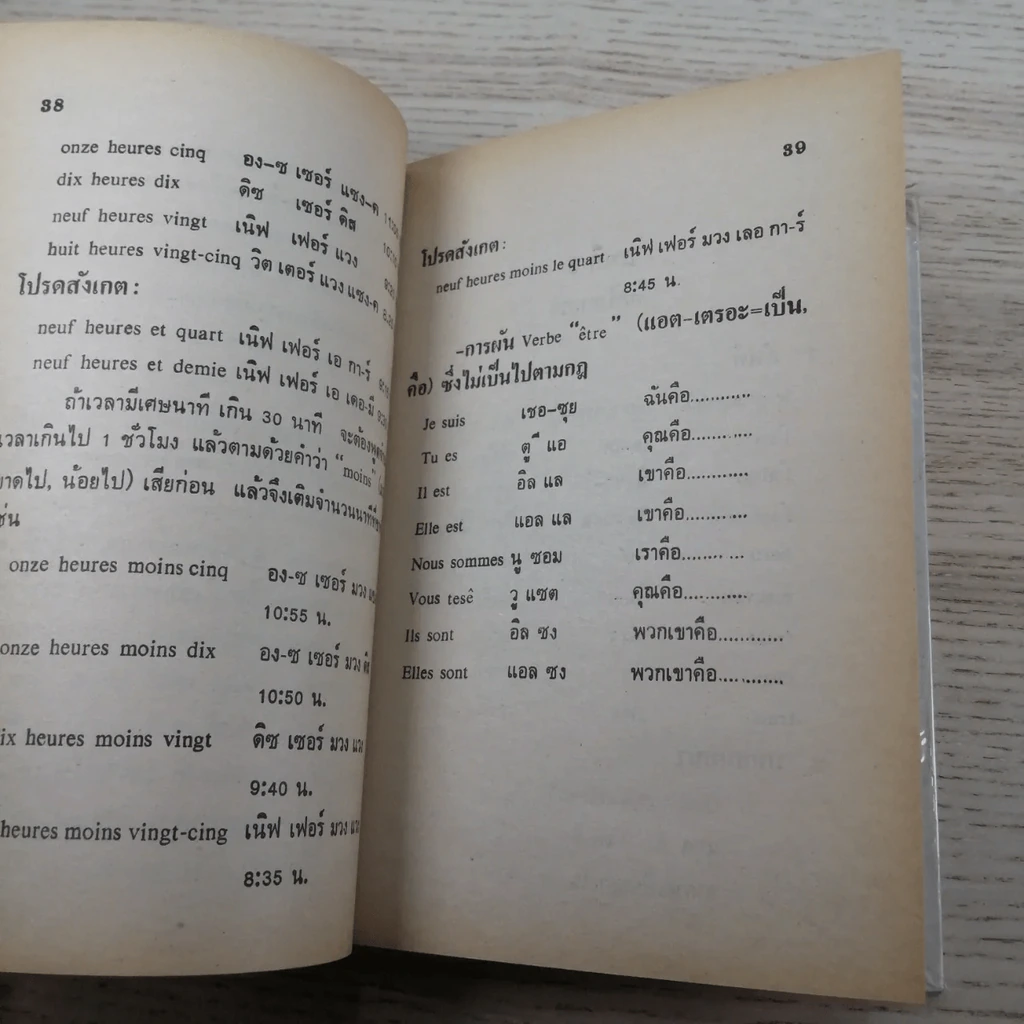 38
onze heures cinq อง-ซ เซอร์ แซง-ค
dix heures dix ดิซ เซอร์ ดิส
neuf heures vingt เนิฟ เฟอร์ แวง
huit heures vingt-cinq วิต เตอร์ แวง แซง-ค
โปรดสังเกต :
neuf heures et quart เนิฟ เฟอร์ เอ กา-ร์
neuf heures et demie เนิฟ เฟอร์ เอ เดอ-มี
ถ้าเวลามีเศษนาที เกิน 30 นาที จะต้อง
เวลาเกินไป 1 ชั่วโมง แล้วตามด้วยคำว่า "moins"
น้อยไป) เสียก่อน แล้วจึงเติมจำนวนนาที
เช่น
onze heures moins cinq อง-ซ เซอร์ มวง
10:55 น.
onze heures moins dix อง-ซ เซอร์ มวง
10:50 น.
heures moins vingt ดิซ เซอร์ มวง
9:40 น.
heures moins vingt-cing เนิฟ เฟอร์ มวง
8:35 น.
39
โปรดสังเกต :
neuf heures moins le quart เนิฟ เฟอร์ มวง เลอ กา-ร์
8:45 น.
-การผัน Verbe "être" (แอต-เตรอะ=เป็น,
คือ) ซึ่งไม่เป็นไปตามกฎ
Je suis เชอ-ซุย ฉันคือ............
Tu es ตู แอ คุณคือ............
Il est อิล แล เขาคือ............
Elle est แอล แล เขาคือ............
Nous sommes นู ซอม เราคือ........ ...
Vous tesê วู แซต คุณคือ............
Ils sont อิล ซง พวกเขาคือ............
Elles sont แอล ซง พวกเขาคือ............